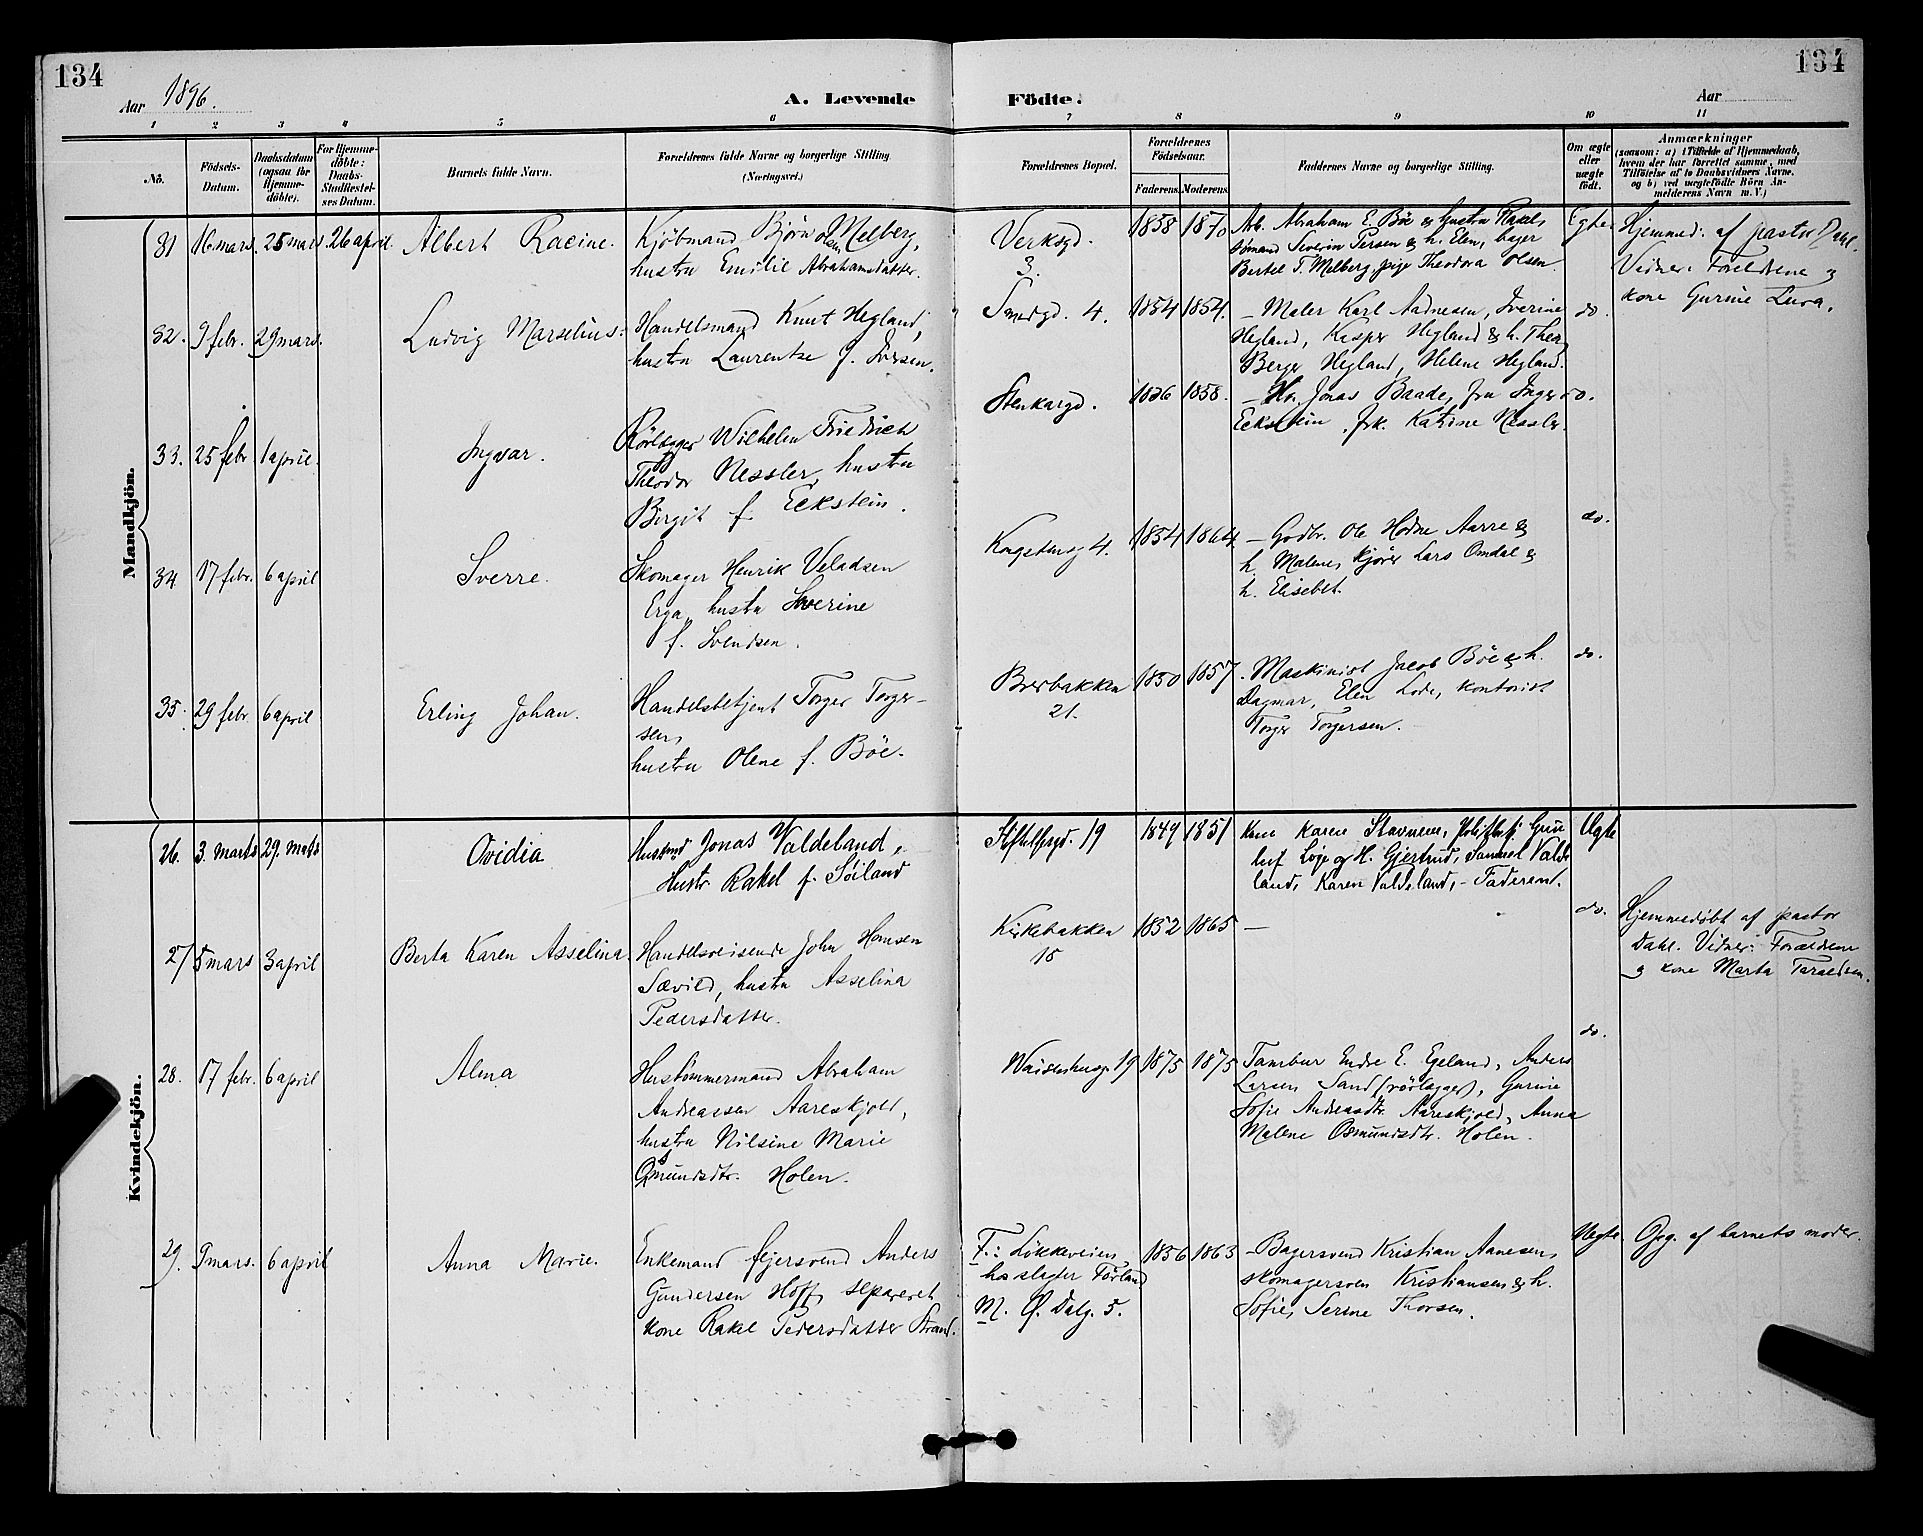 134
134
Aar 1896.
A. Levende Födte.
Aar
1 2 3 4 5 6 7 8 9 10 11
No.
Födsels-
Datum.
Daabsdatum
(ogsaa för
Hjemme-
döbte).
For Hjemme-
döbte:
Daabs-
Stadfæstel-
ses Datum.
Barnets fulde Navn.
Forældrenes fulde Navne og borgerlige Stilling
(Næringsvei.)
Forældrenes Bopæl.
Forældrenes
Födselsaar.
Faderens.
Moderens.
Faddernes Navne og borgerlige Stilling.
Om ægte
eller
uægte
födt.
Anmærkninger
(saasom: a) i Tilfælde af Hjemmedaab,
hvem der har forrettet samme, med
Tilföielse af to Daabsvidners Navne,
og b) ved uægtefödte Börn An-
melderens Navn m. V.)
Mandkjön.
31 16 mars. 25 mars 26 april. Albert Racine.
Kjöbmand Björn Olsen Melberg,
hustru Emilie Abrahamsdatter.
Verksgd.
3.
1858 1870
Arb. Abraham E. Böe & hustru Rakel,
sömand Severin Persen & h. Elen, bager
Bertel T. Melberg, pige Theodora Olsen.
Egte.
Hjemmed: af pastor Dahl.
Vidner: Foreldrene &
kone Gurine Lura.
32. 9 febr. 29 mars. Ludvig Marselius:
Handelsmand Knut Hegland,
hustru Laurentse f. Iversen.
Smedgd. 4.
1854 1854.
– Maler Karl Aadnesen, Iverine
Hegland, Kasper Hegland & h. Thea,
Berge Hegland, Helene Hegland.
do.
33. 25 febr 1 april. Ingvar.
Rörlægger Wilhelm Friedrich
Theodor Nessler, hustru
Birgit f. Eckstein.
Stenkargd.
1836 1858.
– Hr. Jonas Baade, fru Inger
Eckstein, frk. Katrine Nessler.
do.
34 17 febr. 6 april Sverre.
Skomager Henrik Veladsen
Erga, hustru Severine
f. Svendsen.
Kongstensg 4.
1854 1864
– Godbr. Ole Hodne Aarre &
h. Malene, kjörer Lars Omdal &
h. Elisebet.
do.
35. 29 febr. 6 april Erling Johan.
Handelsbetjent Torger Torger-
sen,
hustru Olene f. Böe.
Brerbakken
21.
1850 1857
. Maskinist Jacob Böe & h.
Dagmar, Elen Lode, kontorist
Torger Torgersen.
do.
Kvindekjön.
26. 3. marts 29. marts Ovidia
Jonas Valdeland,
Hustr. Rakel f. Söiland
19
1849 1851
Kone Karen Stavnem, Grun
leif Löge og H. Gjertrud, Samuel Valde
land, Karen Valdeland, – Faderend.
Ægte
27 5 mars 3 april Berta Karen Asselina.
Handelsreisende John Hansen
Sævild, hustru Asselina
Pedersdatter.
Kirkebakken
15
1852 1865
–
do.
Hjemmedøbt af pastor
Dahl. Vidner: Forældrene
& kone Marta Taraldsen.
28. 17 febr. 6 april Alma
Hustömmermand Abraham
Andreassen Aareskjold,
hustru Nilsine Marie
Osmundsdtr. Holen.
19
1875 1875
Tambur Endre E. Egeland, Anders
Larsen Sand (rörlægger), Gurine
Sofie Andreasdtr. Aareskjold, Anna
Malene Osmundsdtr. Holen.
do.
29. 9 mars. 6 april Anna Marie.
Enkemand fejersvend Anders
Gundersen Hoff, separeret
kone Rakel Pedersdatter Strand.
F.: Lökkeveien
hos slagter Förland
M. Ø. Dalg. 5.
1856 1863
– Bagersvend Kristian Aanesen,
skomagersven Kristiansen & h.
Sofie, Serine Thorsen.
Uegte
Opg. af barnets moder.